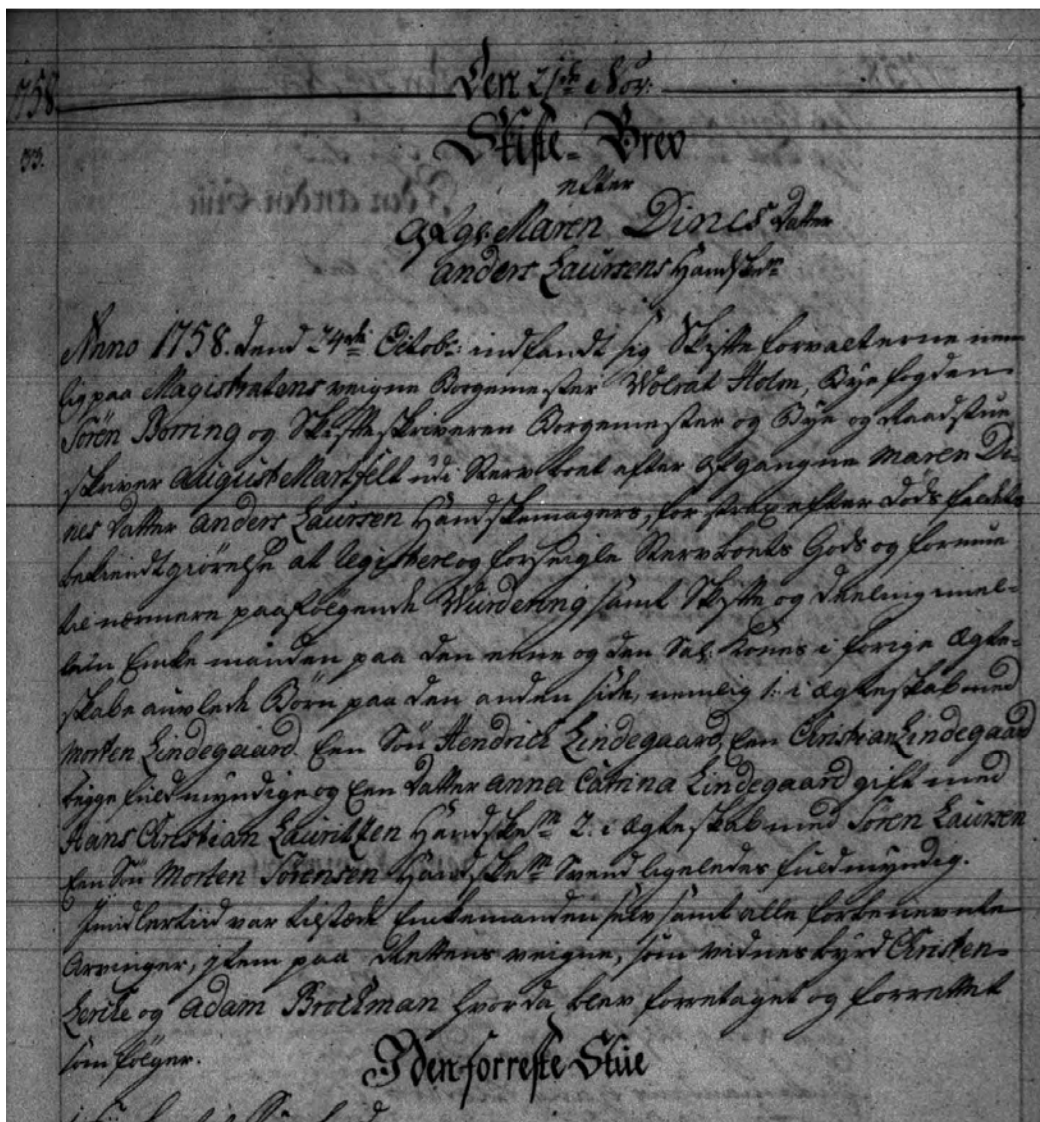 Den 21de Nov:
1758.
Skifte-Brev
efter
Afgl: Maren Dines Datter
Anders Laursens Handskem:
Anno 1758. dend 24de Octobr: indfandt sig Skifteforvalterne nem-
lig paa Magistratens veigne Borgemester Wolrat Holm, Byefogden
Sören Borring og Skifteskriveren Borgemester og Bye og Raadstue
skriver August Martfelt udi Stervboet efter afgangne Maren Di-
nes Datter Anders Laursen Handskemagers, for strax efter Döds faldets
bekiendtgiörelse at registere og forseigle Stervboets Gods og formue
til nærmere paafölgende Wurdering samt Skifte og deeling imel-
lem Enke manden paa den eene og den Sal: Kones i forige Ægte-
skabe auvlede Börn paa den anden side, nemlig 1: i Ægteskab med
Morten Lindegaard. Een Sön Hendrich Lindegaard, Een Christian Lindegaard
begge fuldmyndige og Een Datter Anna Catrina Lindegaard gift med
Hans Christian Lauritzen Handskem 2: i Ægteskab med Sören Laursen
Een Sön Morten Sörensen Handskem Svend ligeledes fuldmyndig.
Imidlertiid var tilstæde Enkemanden selv samt alle forbenevnte
Arvinger, item paa Rettens veigne, som vidnesbyrd Christen
og Adam Brockman hvor da blev foretaget og forrettet
som fölger.
I den forreste Stue